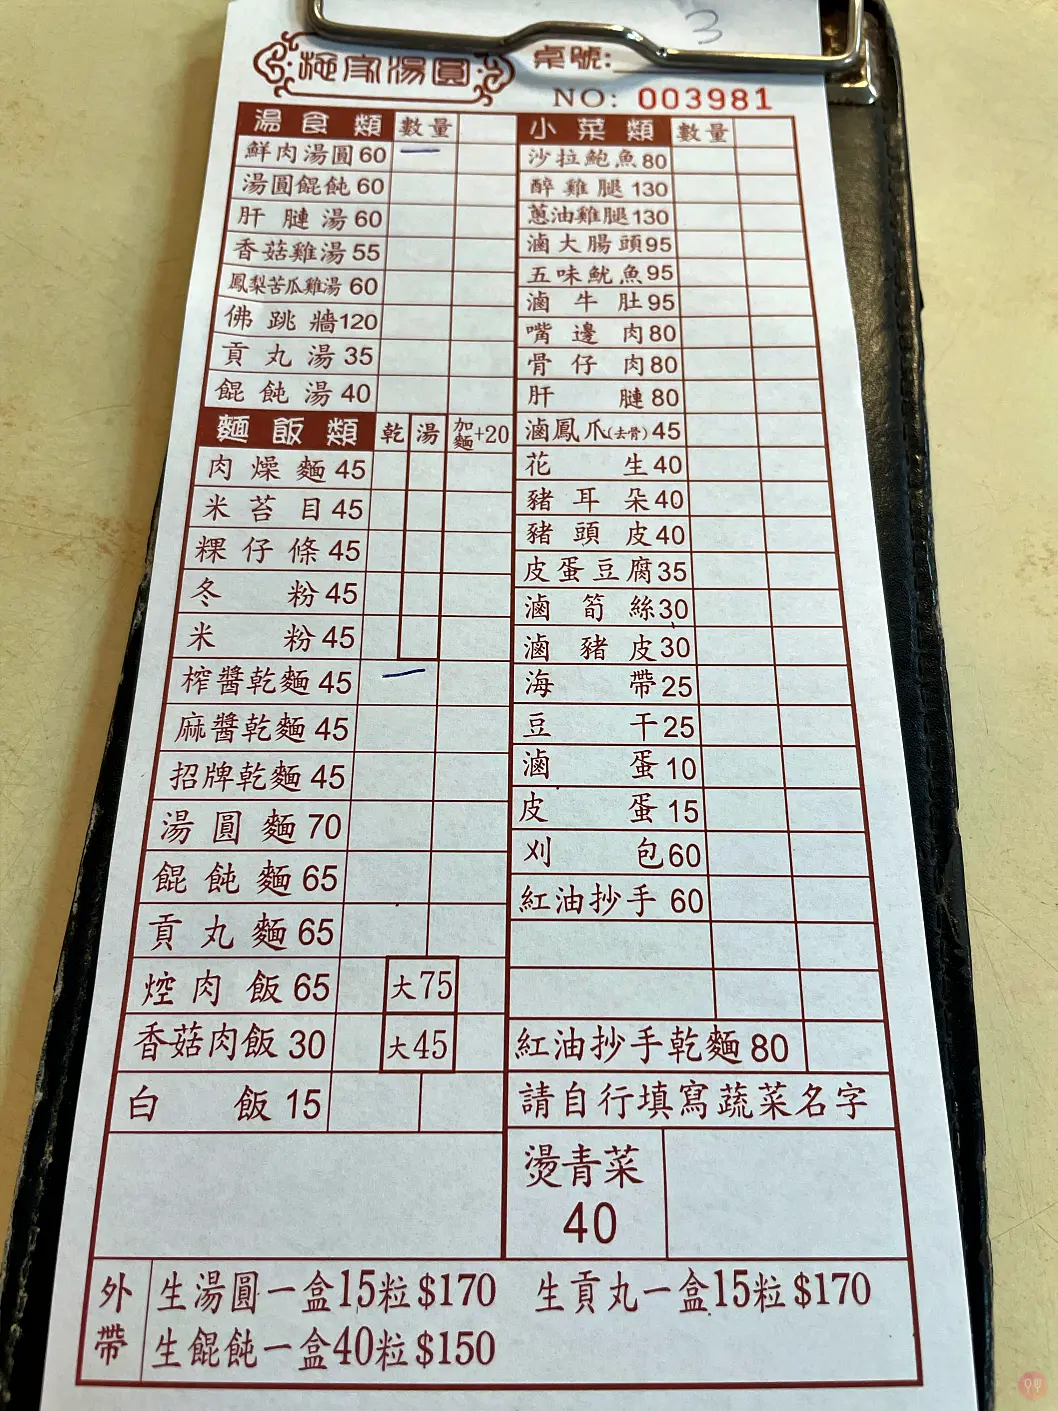 3
施家湯圓
桌號:
NO: 003981
湯食類 數量
鮮肉湯圓 60 一
湯圓餛飩 60
肝腱湯 60
香菇雞湯 55
鳳梨苦瓜雞湯 60
佛跳牆 120
貢丸湯 35
餛飩湯 40
麵飯類 乾 湯 加麵+20
肉燥麵 45
米苔目 45
粿仔條 45
冬粉 45
米粉 45
榨醬乾麵 45 一
麻醬乾麵 45
招牌乾麵 45
湯圓麵 70
餛飩麵 65
貢丸麵 65
焢肉飯 65 大75
香菇肉飯 30 大45
白飯 15
小菜類 數量
沙拉鮑魚 80
醉雞腿 130
蔥油雞腿 130
滷大腸頭 95
五味魷魚 95
滷牛肚 95
嘴邊肉 80
骨仔肉 80
肝腱 80
滷鳳爪(去骨) 45
花生 40
豬耳朵 40
豬頭皮 40
皮蛋豆腐 35
滷筍絲 30
滷豬皮 30
海帶 25
豆干 25
滷蛋 10
皮蛋 15
刈包 60
紅油抄手 60
紅油抄手乾麵 80
請自行填寫蔬菜名字
燙青菜
40
外帶
生湯圓一盒15粒$170 生貢丸一盒15粒$170
生餛飩一盒40粒$150